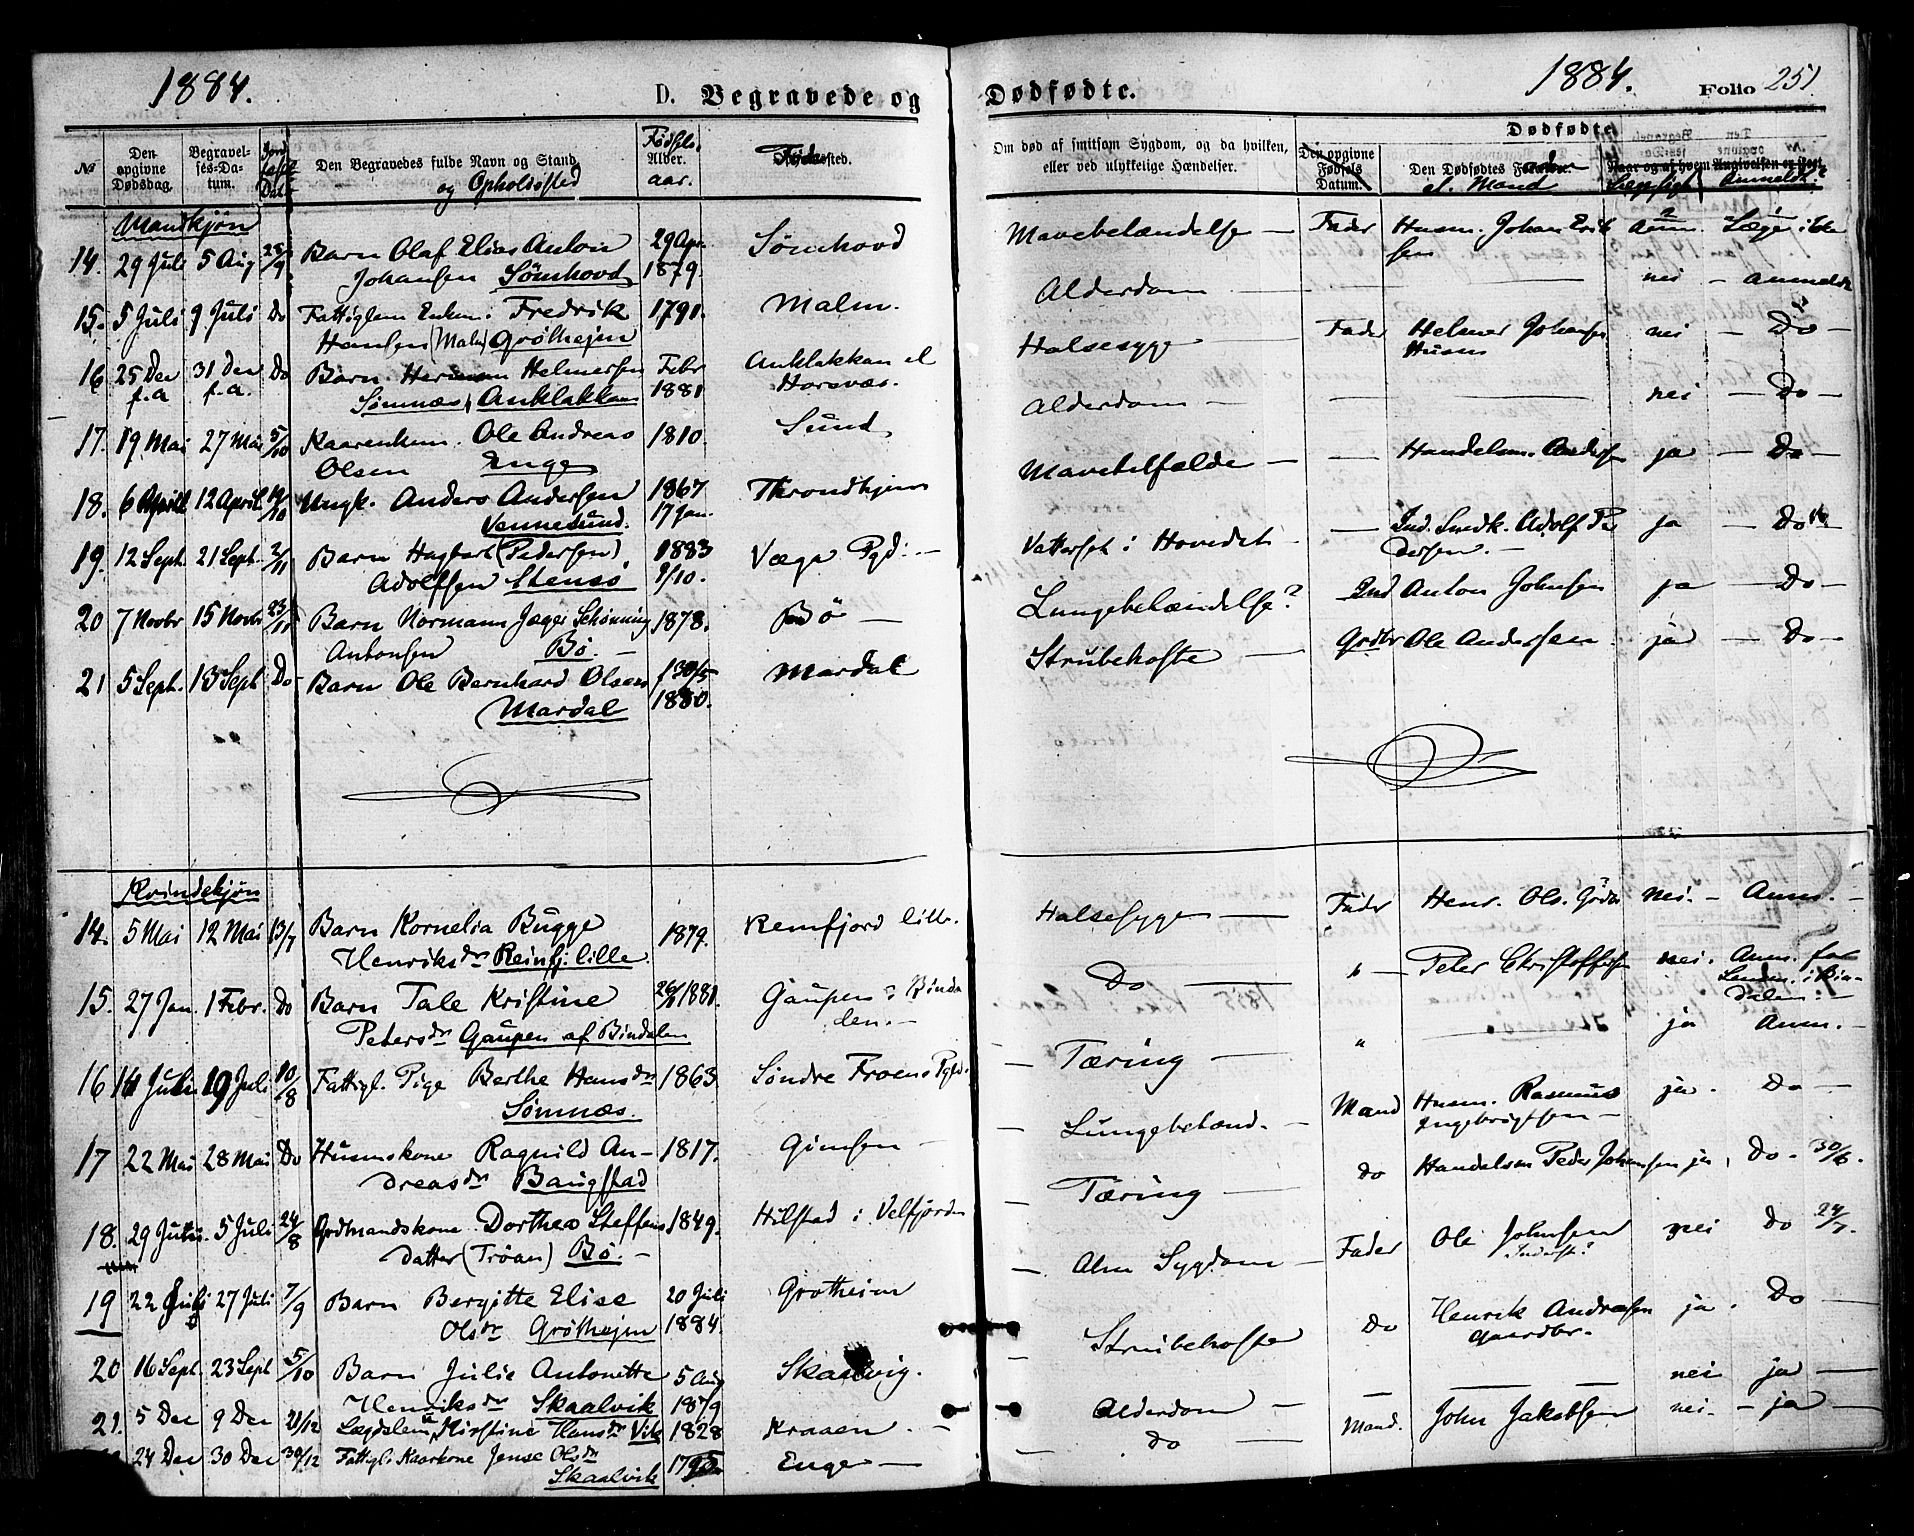 1884.
D. Begravede og
№
Den opgivne Dødsdag.
Begravelses-Datum.
Jord fæst. Dat.
Den Begravedes fulde Navn og Stand
og Opholdssted
Fødsels-
Alder.
aar.
Føde sted.
Mandkjøn
14. 29 Juli 5 Aug 28/9 Barn Olaf Elias Anton 29 Apr. Sømhovd
Johansen Sømhovd 1879.
15. 5 Juli 9 Juli Do Fattiglem Enkem. Fredrik 1791. Malm.
Hansen (Malm) Grøthejm
16 25 Dec 31 Dec Do Barn Herman Helmersen Febr Anklakkan el
f.a f.a. Sømnæs, Anklakkan 1881 Horsvær.
17. 19 Mai 27 Mai 5/10 Kaarenkem. Ole Andreas 1810. Sund
Olsen Enge
18. 6 April 12 April 19/10 Ungk. Anders Andersen 1867 Throndhjem
Vennesund. 17 Jan.
19. 12 Sept. 21 Sept. 2/11 Barn Hagbart (Pedersen) 1883 Væge Pgd. -
Adolfsen Stensø 9/10.
20 7 Novbr 15 Novbr 23/11 Barn Normann Jæger Schønning 1878. Bø -
Antonsen Bø. -
21 5 Sept. 13 Sept Do Barn Ole Bernhard Olsen f 30/5 Mardal
Mardal 1880.
Kvindekjøn
14. 5 Mai 12 Mai 13/7 Barn Kornelia Bugge 1879. Remfjord lille.
Henriksdr Reinfj. lille.
15. 27 Jan. 1 Febr. Do Barn Tale Kristine 1881. Gaupen i Binda
Petersdr Gaupen af Bindalen den. -
16 14 Juli 19 Juli 10/8 Fattigl. Pige Berthe Hansdr 1863. Søndre Froens Pgd.
Sømnæs.
17 22 Mai 28 Mai Do Husmskone Ragnild An- 1817. Gimsen -
dreasdr Bangstad
18. 29 Juni 5 Juli 24/8 Grdmandskone Dorthea Steffens 1849. Hilstad i Velfjorden
datter (Trøan) Bø. -
19 22 Juli 27 Juli 7/9 Barn Bergitte Elise 20 Juli Grøtheim
Olsdr Grøthejm 1884.
20 16 Sept. 23 Sept 5/10 Barn Julie Antonette 5 Aug Skaalvig.
Henriksdr Skaalvik 1879
21. 5 Dec 9 Dec 21/12 Lægdslem Kirstine Hansdr Vik 1828 Kraaen. -
24 Dec 30 Dec 30/12 Fattigl. Kaarkone Jense Olsdr Enge -
Skaalvik
Dødfødte.
1884. Folio 251
Om død af smitsom Sygdom, og da hvilken,
eller ved ulykkelige Hændelser.
Den opgivne Fødsels Datum.
Dødfødte.
Den Dødfødtes Fader.
el. Mand
Naar og af hvem Angivelsen er skeet
Lægesøgt
Anmeldt?
Mavebetændelse - Fader Husm. Johan Erik anm. Læge ikke
sen
Alderdom - nei - anmeldt
Halsesyge Fader Helmer Johansen nei - Do -
Husm
Alderdom - nei - Do -
Mavetilfælde - - Handelsm. Andersen ja - Do -
Vattersot i Hovedet - - Ind. Smedk. Adolf Pe ja - Do
dersen. -
Lungebetændelse? Ind Anton Johnsen ja - Do -
Strubehoste - Grdbr Ole Andersen ja - Do -
Halsesyge - Fader Henr. Ols. nei. - Anm. -
Do - " - Peter Christoffersen nei. Anm.
i Bin
dalen. -
- Tæring - " - ja Anm. -
- Lungebetænd. - Mand Husm. Rasmus ja. Do -
Ingebrigtsen -
- Tæring - Do Handelsm Peder Johansen ja, Do. 30/6.
- Alm Sygdom - Fader Ole Johnsen nei Do 24/7.
Inderst?
- Strubehoste Do Henrik Andreasen ja. Do -
Gaardbr.
- Alderdom - - - nei ja -
- Do - Mand. John Jakobsen nei - - ja -